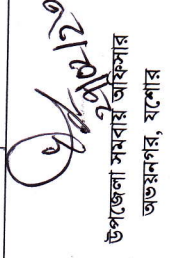 উপজেলা সমবায় অফিসার
অভয়নগর, যশোর